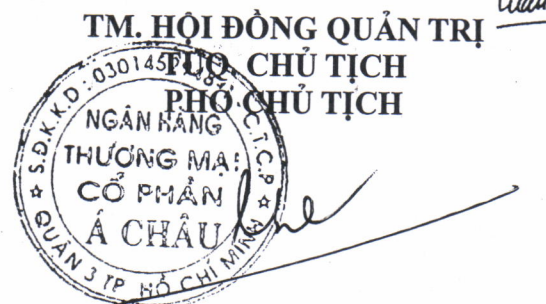 TM. HỘI ĐỒNG QUẢN TRỊ
TUQ. CHỦ TỊCH
PHÓ CHỦ TỊCH
S.Đ.K.K.D: C.T.C.P
NGÂN HÀNG
THƯƠNG MẠI
CỔ PHẦN
Á CHÂU
QUẬN 3 TP HỒ CHÍ MINH